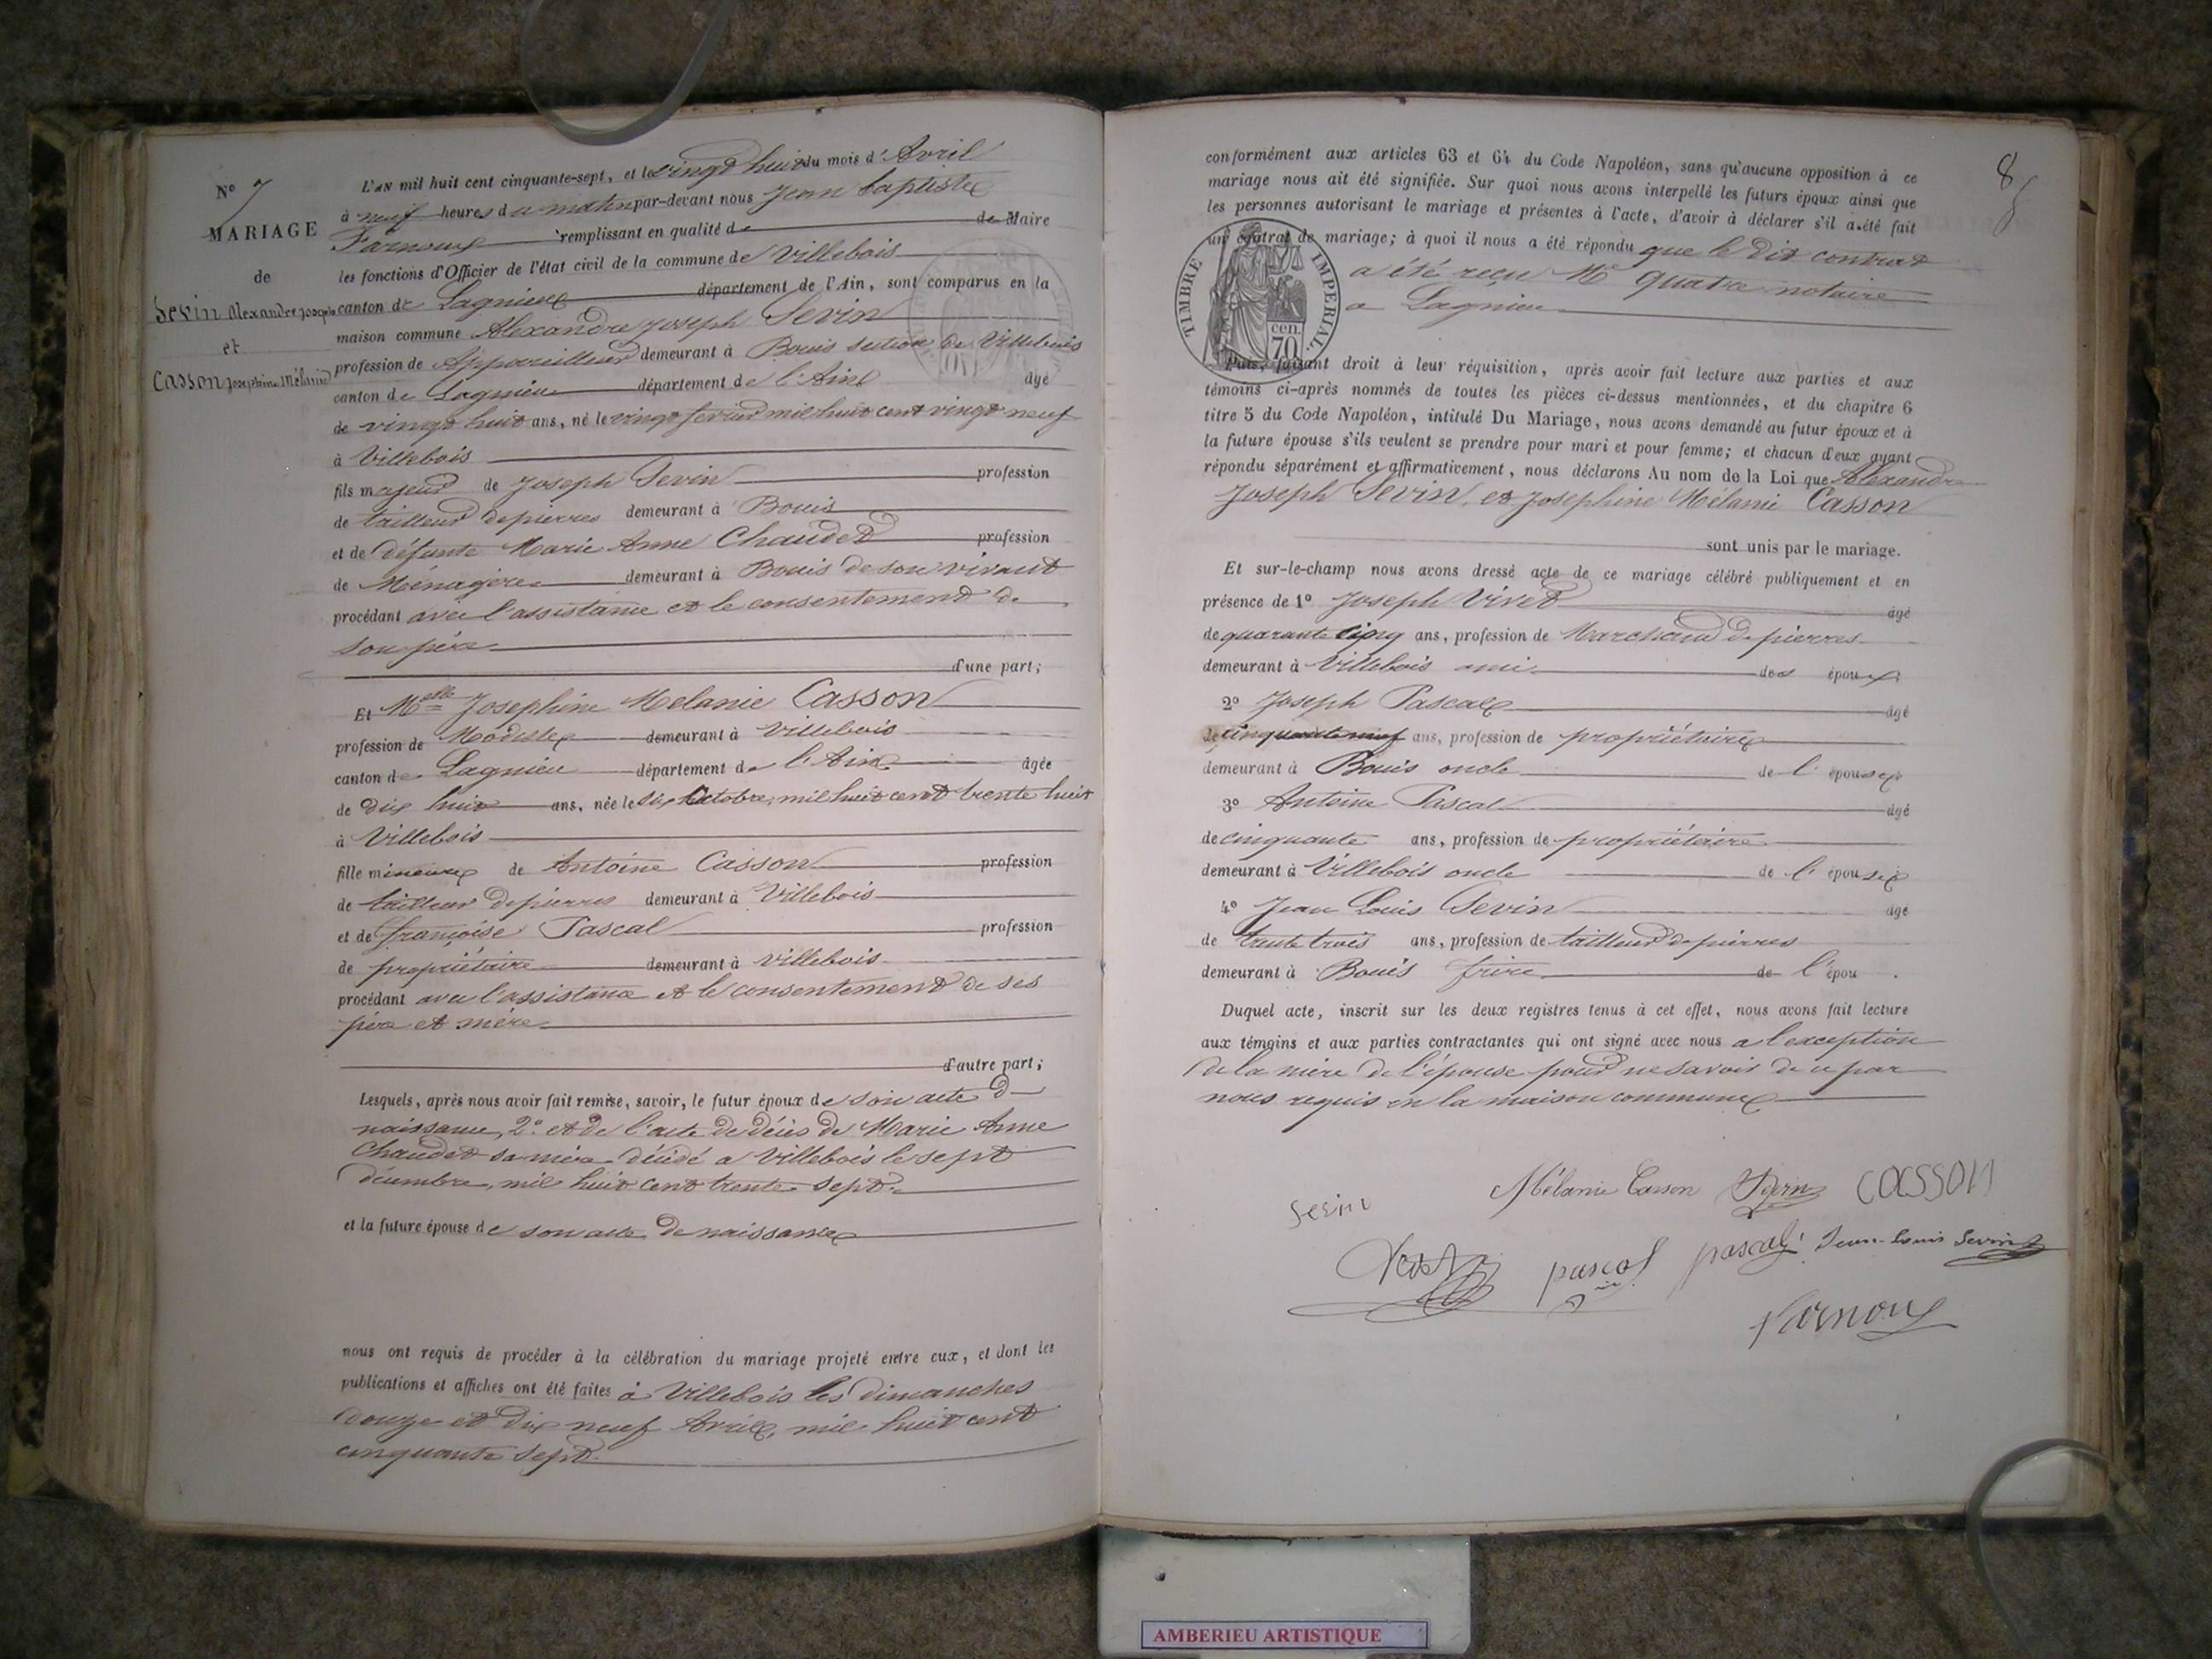 N° 7
MARIAGE
de
Sevin Alexandre Joseph
et
Casson Josephine Mélanie
L'AN mil huit cent cinquante-sept, et le vingt huit du mois d'Avril
à neuf heures du matin par-devant nous Jean Baptiste
Farnoux remplissant en qualité de de Maire
les fonctions d'Officier de l'état civil de la commune de Villebois
canton de Lagnieu département de l'Ain, sont comparus en la
maison commune Alexandre Joseph Sevin
profession de Appareilleur demeurant à Bouis section de Villebois
canton de Lagnieu département de l'Ain âgé
de vingt huit ans, né le vingt fevrier mil huit cent vingt neuf
à Villebois
fils majeur de Joseph Sevin profession
de tailleur de pierres demeurant à Bouis
et de défunte Marie Anne Chaudet profession
de Ménagère demeurant à Bouis de son vivant
procédant avec l'assistance et le consentement de
son père
d'une part;
Et Melle Josephine Melanie Casson
profession de Modiste demeurant à Villebois
canton de Lagnieu département de l'Ain âgée
de dix huit ans, née le six Octobre, mil huit cent trente huit
à Villebois
fille mineure de Antoine Casson profession
de tailleur de pierres demeurant à Villebois
et de françoise Pascal profession
de propriétaire demeurant à Villebois
procédant avec l'assistance et le consentement de ses
père et mère
d'autre part;
Lesquels, après nous avoir fait remise, savoir, le futur époux de son acte de
naissance, 2° et de l'acte de décès de Marie Anne
Chaudet sa mère décédé a Villebois le sept
décembre, mil huit cent trente sept.
et la future épouse de son acte de naissance
nous ont requis de procéder à la célébration du mariage projeté entre eux, et dont les
publications et affiches ont été faites à Villebois les dimanches
douze et dix neuf Avril, mil huit cent
cinquante sept.
8
conformément aux articles 63 et 64 du Code Napoléon, sans qu'aucune opposition à ce
mariage nous ait été signifiée. Sur quoi nous avons interpellé les futurs époux ainsi que
les personnes autorisant le mariage et présentes à l'acte, d'avoir à déclarer s'il a été fait
un contrat de mariage; à quoi il nous a été répondu que le dit contrat
a été reçu Me Quatre notaire
a Lagnieu
TIMBRE IMPERIAL
70 cen.
Puis, faisant droit à leur réquisition, après avoir fait lecture aux parties et aux
témoins ci-après nommés de toutes les pièces ci-dessus mentionnées, et du chapitre 6
titre 5 du Code Napoléon, intitulé Du Mariage, nous avons demandé au futur époux et à
la future épouse s'ils veulent se prendre pour mari et pour femme; et chacun d'eux ayant
répondu séparément et affirmativement, nous déclarons Au nom de la Loi que Alexandre
Joseph Sevin, et Josephine Mélanie Casson
sont unis par le mariage.
Et sur-le-champ nous avons dressé acte de ce mariage célébré publiquement et en
présence de 1° Joseph Vivet âgé
de quarante cinq ans, profession de Marchand de pierres
demeurant à Villebois ami des époux
2° Joseph Pascal âgé
de cinquante neuf ans, profession de propriétaire
demeurant à Bouis oncle de l'épouse
3° Antoine Pascal âgé
de cinquante ans, profession de propriétaire
demeurant à Villebois oncle de l'épouse
4° Jean Louis Sevin âgé
de trente trois ans, profession de tailleur de pierres
demeurant à Bouis frère de l'épou .
Duquel acte, inscrit sur les deux registres tenus à cet effet, nous avons fait lecture
aux témoins et aux parties contractantes qui ont signé avec nous a l'exception
de la mère de l'épouse pour ne savoir de ce par
nous requis en la maison commune
Mélanie Casson Sevin CASSON
Sevin
pascal pascal Jean-Louis Sevin
Farnoux
AMBERIEU ARTISTIQUE